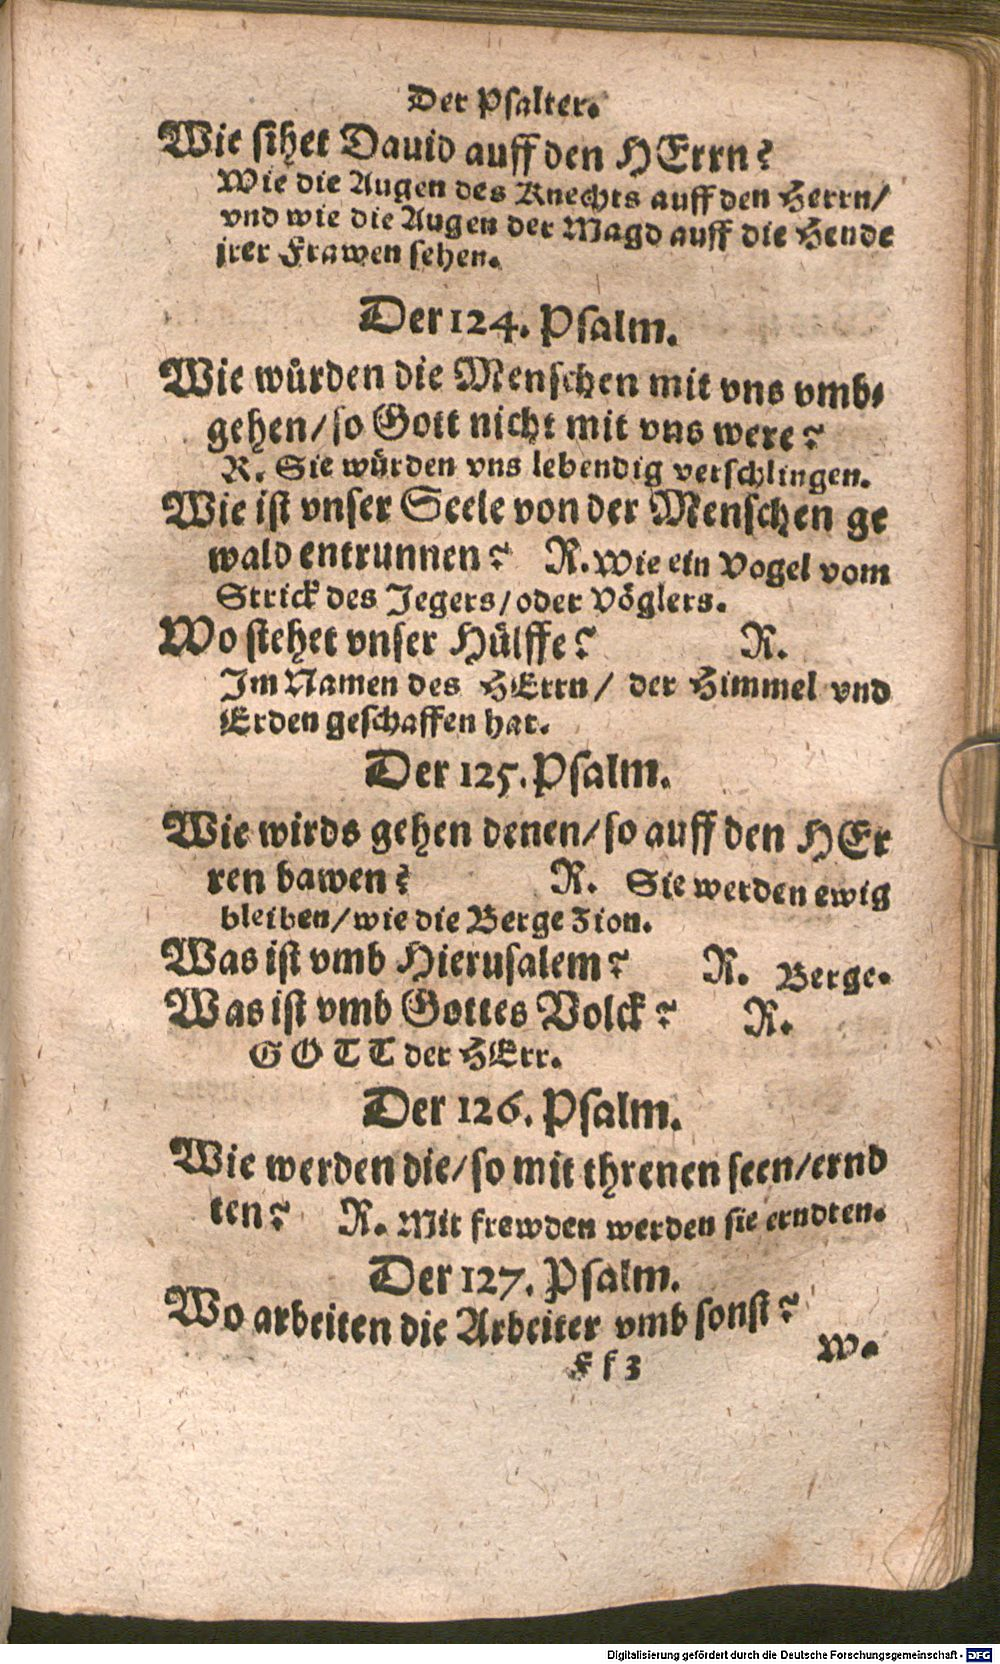 Der Psalter.
Wie sihet Dauid auff den HErrn?
Wie die Augen des Knechts auff den Herrn/
vnd wie die Augen der Magd auff die Hende
jrer Frawen sehen.
Der 124. Psalm.
Wie würden die Menschen mit vns vmb-
gehen/so Gott nicht mit vns were?
R. Sie würden vns lebendig verschlingen.
Wie ist vnser Seele von der Menschen ge
wald entrunnen? R. Wie ein Vogel vom
Strick des Jegers/oder Vöglers.
Wo stehet vnser Hülffe? R.
Im Namen des HErrn/ der Himmel vnd
Erden geschaffen hat.
Der 125. Psalm.
Wie wirds gehen denen/so auff den HEr
ren bawen? R. Sie werden ewig
bleiben/wie die Berge Zion.
Was ist vmb Hierusalem? R. Berge.
Was ist vmb Gottes Volck? R.
GOTT der HErr.
Der 126. Psalm.
Wie werden die/so mit threnen seen/ernd
ten? R. Mit frewden werden sie erndten.
Der 127. Psalm.
Wo arbeiten die Arbeiter vmb sonst?
F f 3 W.
Digitalisierung gefördert durch die Deutsche Forschungsgemeinschaft - DFG